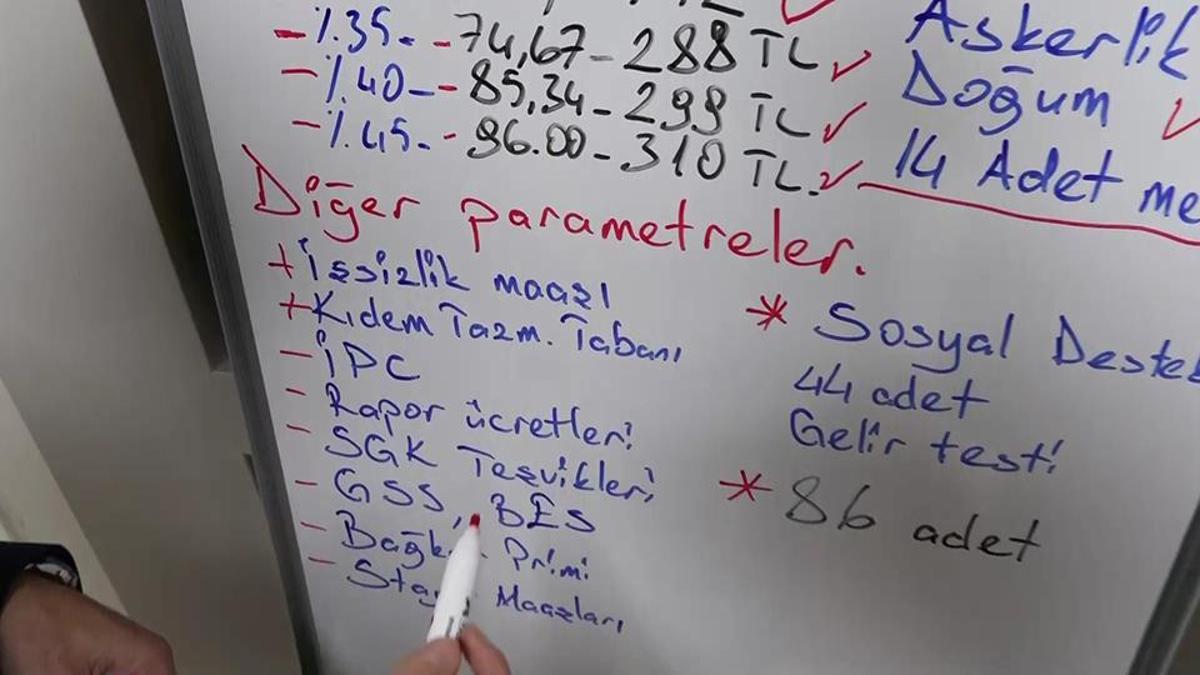 - %35. - 74,67 - 288 TL ✓
- %40 - - 85,34 - 299 TL ✓
- %45. - 96.00 - 310 TL. ✓
Askerlik
Doğum ✓
14 Adet me
Diğer parametreler.
+ İşsizlik maaşı
+ Kıdem Tazm. Tabanı
- İPC
- Rapor ücretleri
- SGK Teşvikleri
- GSS, BES
- Primi
- Maaşları
* Sosyal Destek
44 adet
Gelir testi
* 86 adet